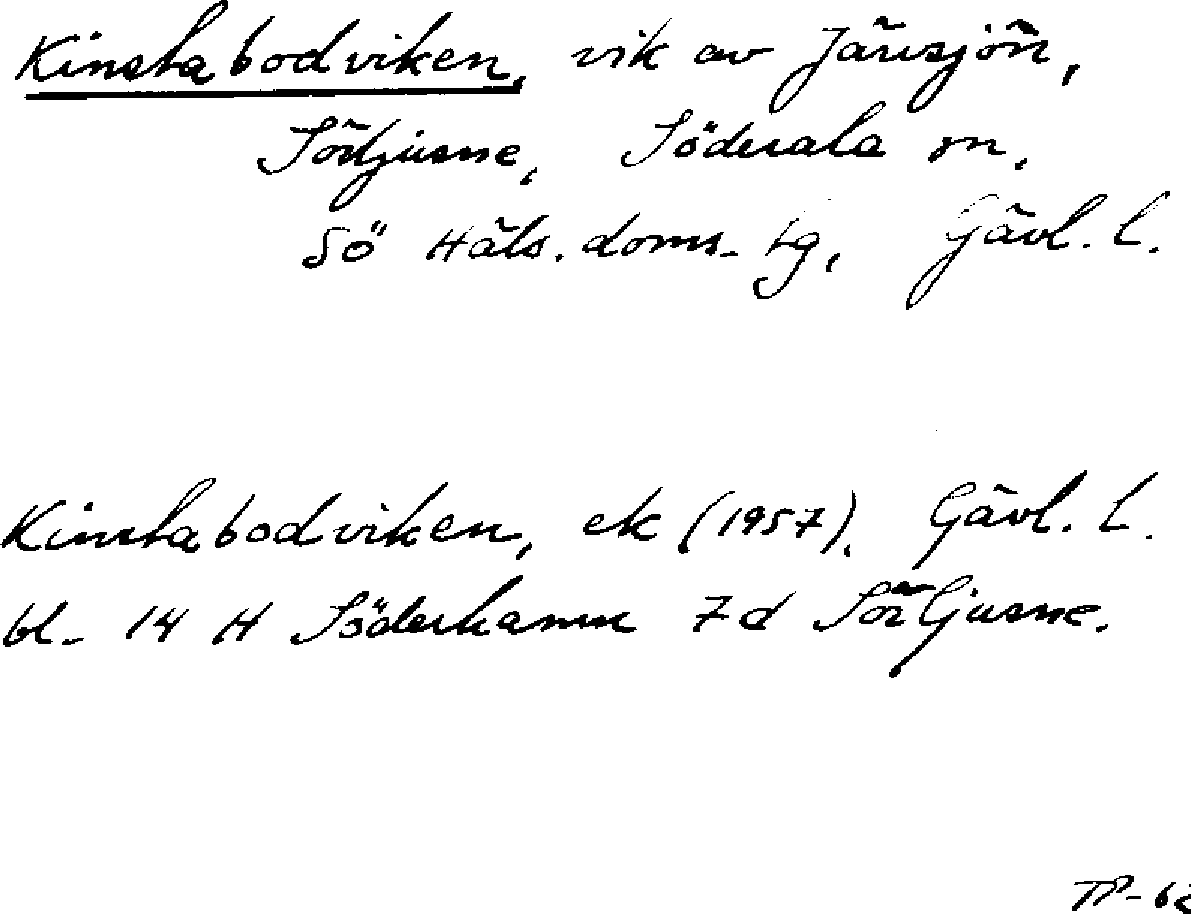 Kinstabodviken, vik av Järvsjön,
Sörljusne, Söderala sn,
Sö Häls. doms. tg, Gävl. l.
Kinstabodviken, ek (1957). Gävl. l.
bl. 14 H Söderhamn 7d Sörljusne.
TP-62